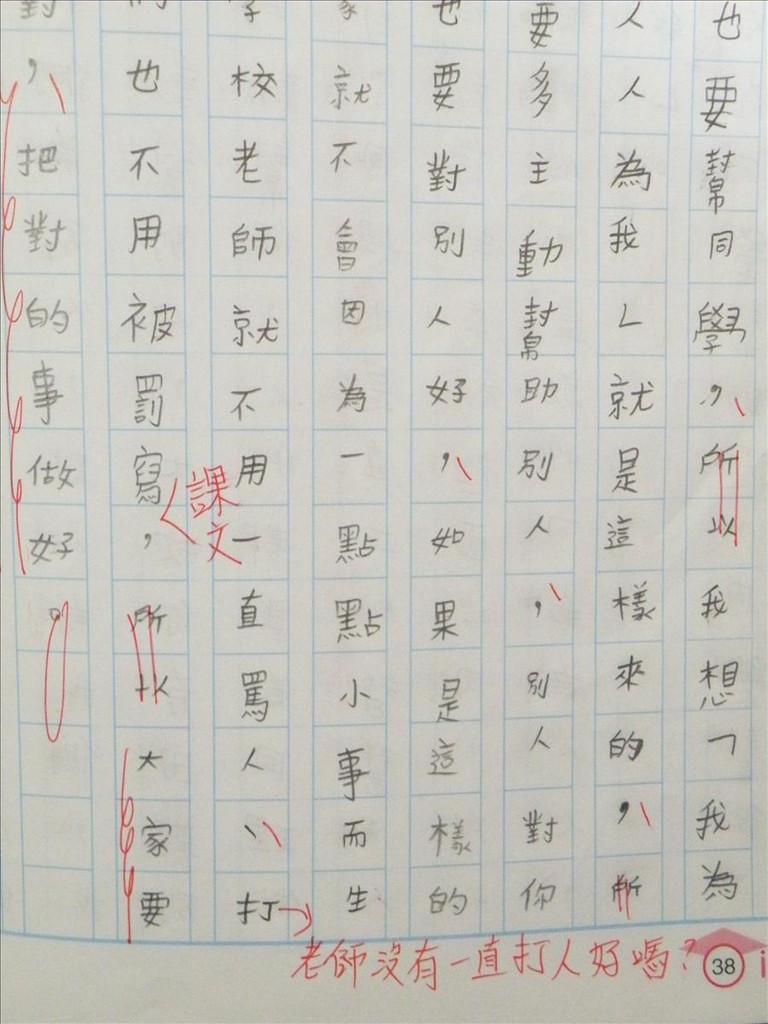 也要幫同學,所以我想「我為
人人為我」就是這樣來的,所
要多主動幫助別人,別人對你
也要對別人好,如果是這樣的
就不會因為一點點小事而生
校老師就不用一直罵人、打
也不用被罰寫,所以大家要
課文
對,把對的事做好。
老師沒有一直打人好嗎?
38